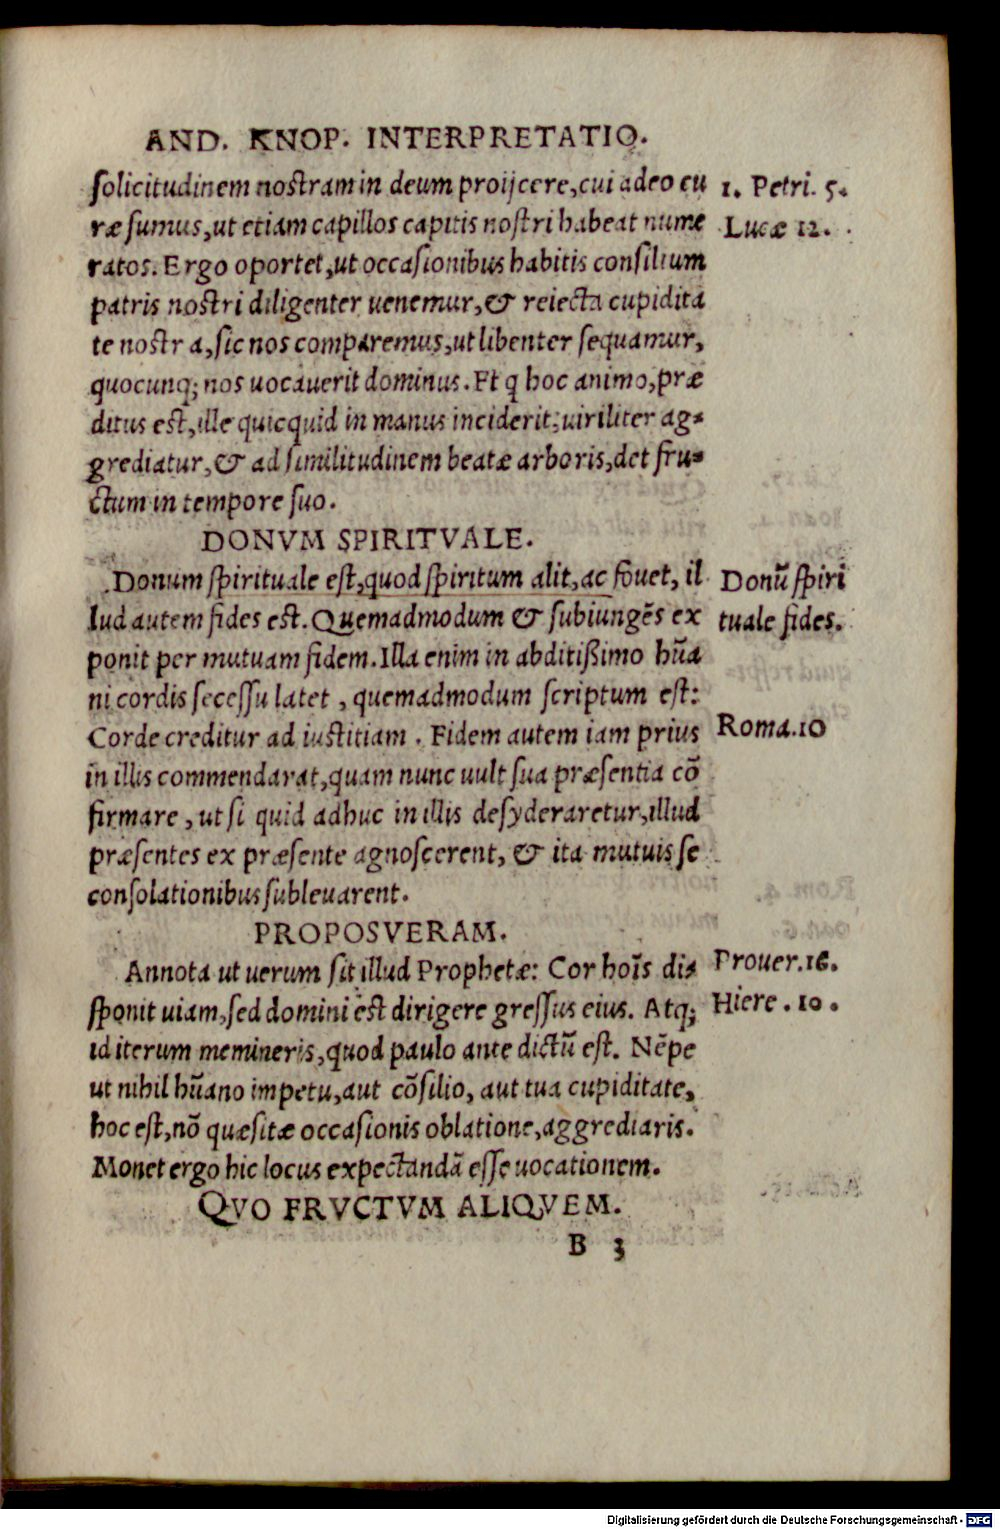 AND. KNOP. INTERPRETATIO.
solicitudinem nostram in deum proijcere, cui adeo cu
ræ sumus, ut etiam capillos capitis nostri habeat nume
ratos. Ergo oportet, ut occasionibus habitis consilium
patris nostri diligenter uenemur, & reiecta cupidita
te nostra, sic nos comparemus, ut libenter sequamur,
quocunq; nos uocauerit dominus. Et q hoc animo, præ
ditus est, ille quicquid in manus inciderit; uiriliter ag-
grediatur, & ad similitudinem beatæ arboris, det fru-
ctum in tempore suo.
1. Petri. 5.
Lucæ 12.
DONVM SPIRITVALE.
Donum spirituale est, quod spiritum alit, ac fouet, il
lud autem fides est. Quemadmodum & subiungẽs ex
ponit per mutuam fidem. Illa enim in abditißimo hũa
ni cordis secessu latet, quemadmodum scriptum est:
Corde creditur ad iustitiam. Fidem autem iam prius
in illis commendarat, quam nunc uult sua præsentia cõ
firmare, ut si quid adhuc in illis desyderaretur, illud
præsentes ex præsente agnoscerent, & ita mutuis se
consolationibus subleuarent.
Donũ spiri
tuale fides.
Roma.10
PROPOSVERAM.
Annota ut uerum sit illud Prophetæ: Cor hoĩs di-
sponit uiam, sed domini est dirigere gressus eius. Atq;
id iterum memineris, quod paulo ante dictũ est. Nẽpe
ut nihil hũano impetu, aut cõsilio, aut tua cupiditate,
hoc est, nõ quæsitæ occasionis oblatione, aggrediaris.
Monet ergo hic locus expectandã esse uocationem.
Prouer.16.
Hiere. 10.
QVO FRVCTVM ALIQVEM.
B 3
Digitalisierung gefördert durch die Deutsche Forschungsgemeinschaft - DFG